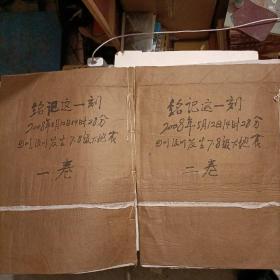 铭记这一刻
2008年5月12日14时28分
四川汶川发生7.8级大地震
一卷
铭记这一刻
2008年5月12日14时28分
四川汶川发生7.8级大地震
二卷